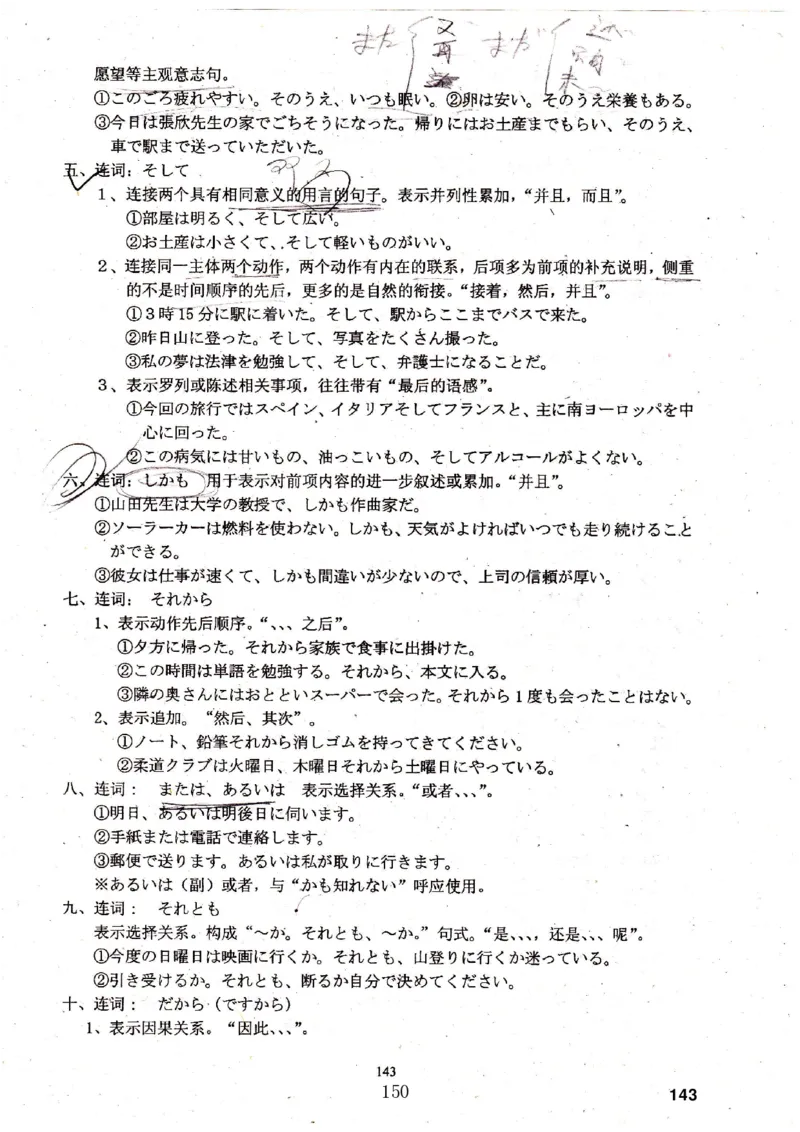 また 又 再 まだ 还
未
愿望等主观意志句。
①このごろ疲れやすい。そのうえ、いつも眠い。②卵は安い。そのうえ栄養もある。
③今日は張欣先生の家でごちそうになった。帰りにはお土産までもらい、そのうえ、
車で駅まで送っていただいた。
五、连词：そして
1、连接两个具有相同意义的用言的句子。表示并列性累加，“并且，而且”。
①部屋は明るく、そして広い。
②お土産は小さくて、そして軽いものがいい。
2、连接同一主体两个动作，两个动作有内在的联系，后项多为前项的补充说明，侧重
的不是时间顺序的先后，更多的是自然的衔接。“接着，然后，并且”。
①３時15分に駅に着いた。そして、駅からここまでバスで来た。
②昨日山に登った。そして、写真をたくさん撮った。
③私の夢は法津を勉強して、そして、弁護士になることだ。
3、表示罗列或陈述相关事项，往往带有“最后的语感”。
①今回の旅行ではスペイン、イタリアそしてフランスと、主に南ヨーロッパを中
心に回った。
②この病気には甘いもの、油っこいもの、そしてアルコールがよくない。
六、连词：しかも 用于表示对前项内容的进一步叙述或累加。“并且”。
①山田先生は大学の教授で、しかも作曲家だ。
②ソーラーカーは燃料を使わない。しかも、天気がよければいつでも走り続けること
ができる。
③彼女は仕事が速くて、しかも間違いが少ないので、上司の信頼が厚い。
七、连词： それから
1、表示动作先后顺序。“、、、之后”。
①夕方に帰った。それから家族で食事に出掛けた。
②この時間は単語を勉強する。それから、本文に入る。
③隣の奥さんにはおとといスーパーで会った。それから１度も会ったことはない。
2、表示追加。“然后、其次”。
①ノート、鉛筆それから消しゴムを持ってきてください。
②柔道クラブは火曜日、木曜日それから土曜日にやっている。
八、连词： または、あるいは 表示选择关系。“或者、、、”。
①明日、あるいは明後日に伺います。
②手紙または電話で連絡します。
③郵便で送ります。あるいは私が取りに行きます。
※あるいは（副）或者，与“かも知れない”呼应使用。
九、连词： それとも
表示选择关系。构成“～か。それとも、～か。”句式。“是、、、，还是、、、呢”。
①今度の日曜日は映画に行くか。それとも、山登りに行くか迷っている。
②引き受けるか。それとも、断るか自分で決めてください。
十、连词： だから（ですから）
1、表示因果关系。“因此、、、”。
143
150
143